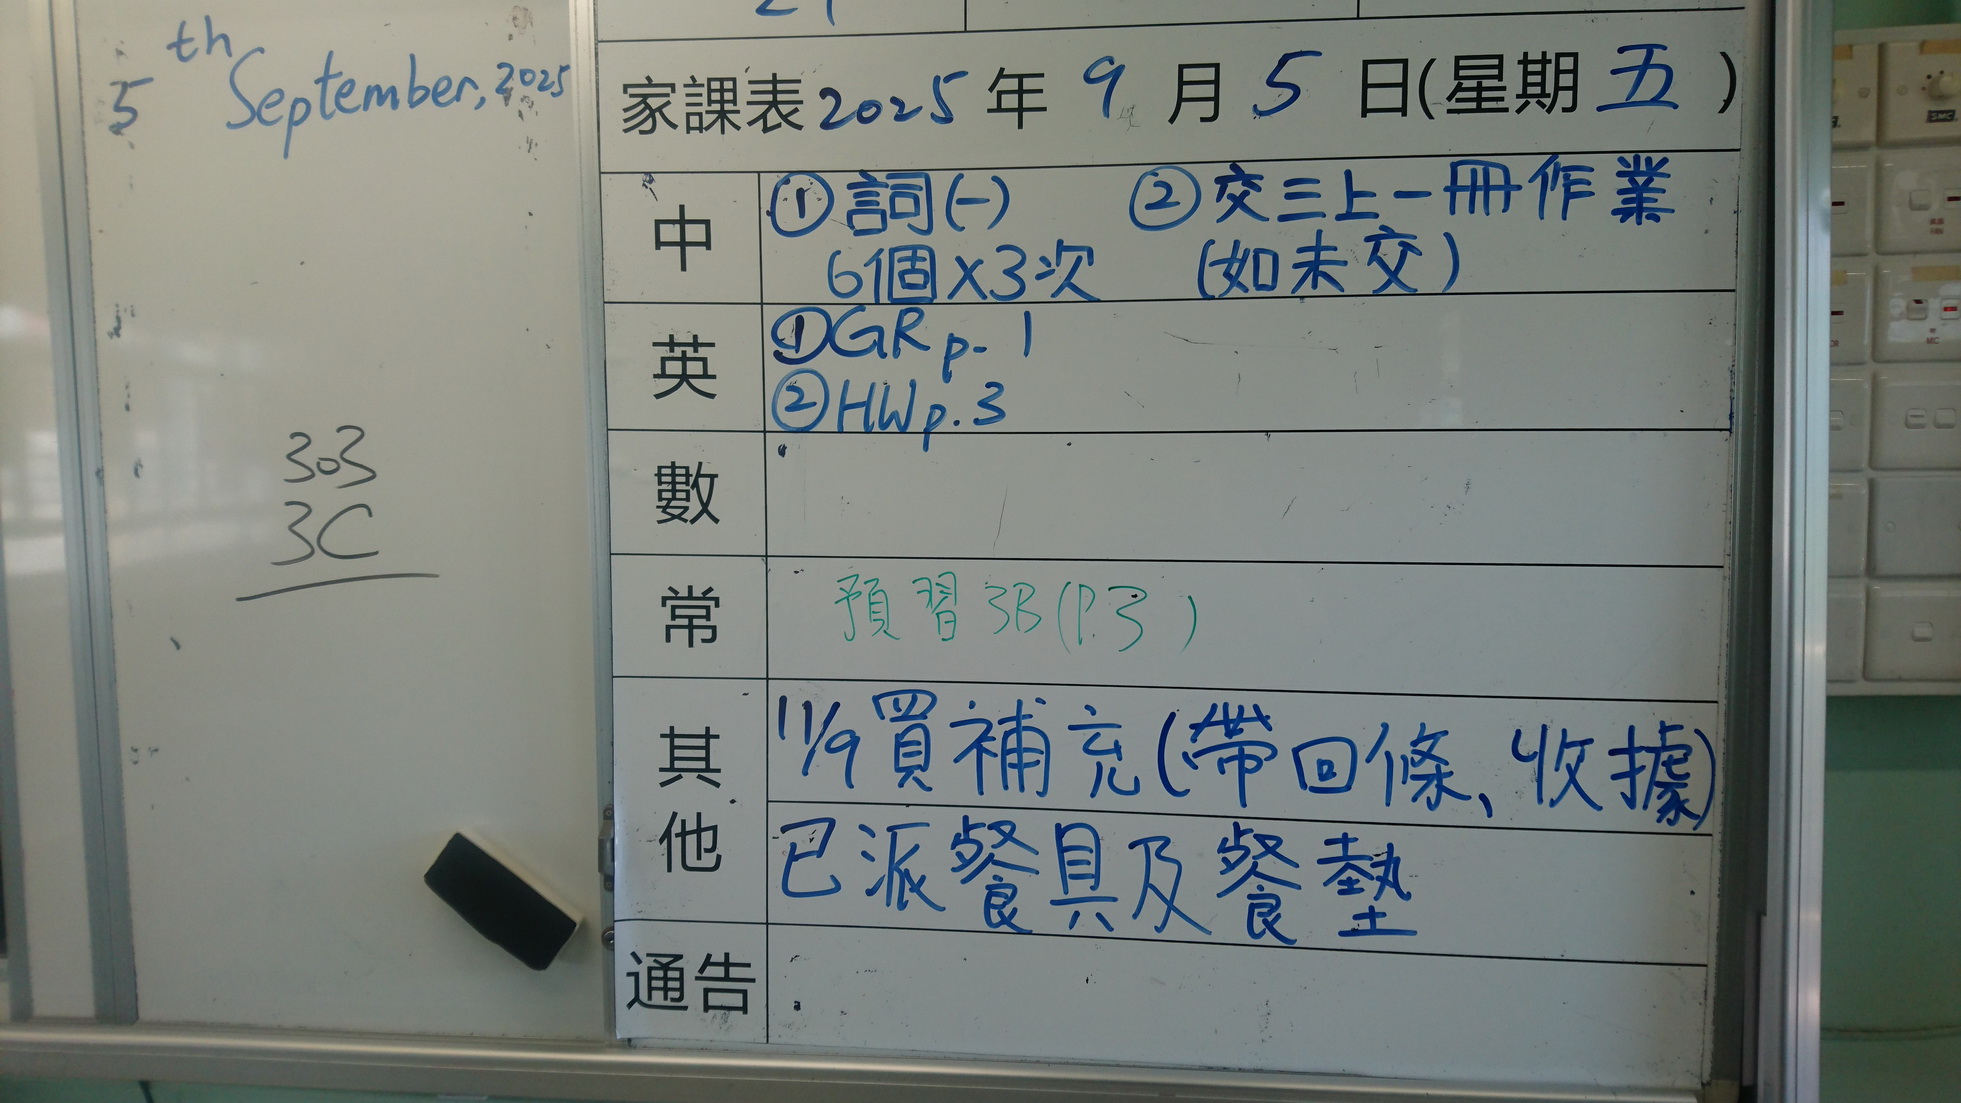 5th September, 2025
303
3C
家課表2025年9月5日(星期五)
中
①詞(一) ②交三上一冊作業
6個X3次 (如未交)
英
①GR p. 1
②HW p.3
數
常
預習3B(P.3)
其他
11/9買補充(帶回條、收據)
已派餐具及餐墊
通告
SMC
FAN